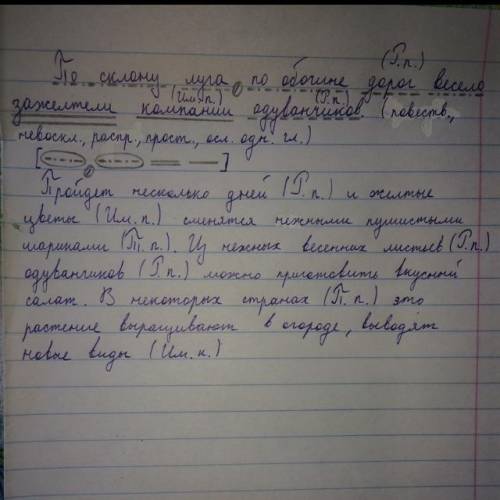 (Р.п.)
По склону луга по обочине дорог весело
(Им.п.) (Р.п.)
зажелтели компании одуванчиков. (повеств.,
невоскл., распр., прост., осл. одн. гл.)
[ ]
Пройдет несколько дней (Р.п.) и желтые
цветы (Им.п.) сменятся нежными пушистыми
шариками (Т.п.). Из нежных весенних листьев (Р.п.)
одуванчиков (Р.п.) можно приготовить вкусный
салат. В некоторых странах (П.п.) это
растение выращивают в огороде, выводят
новые виды (Им.п.)